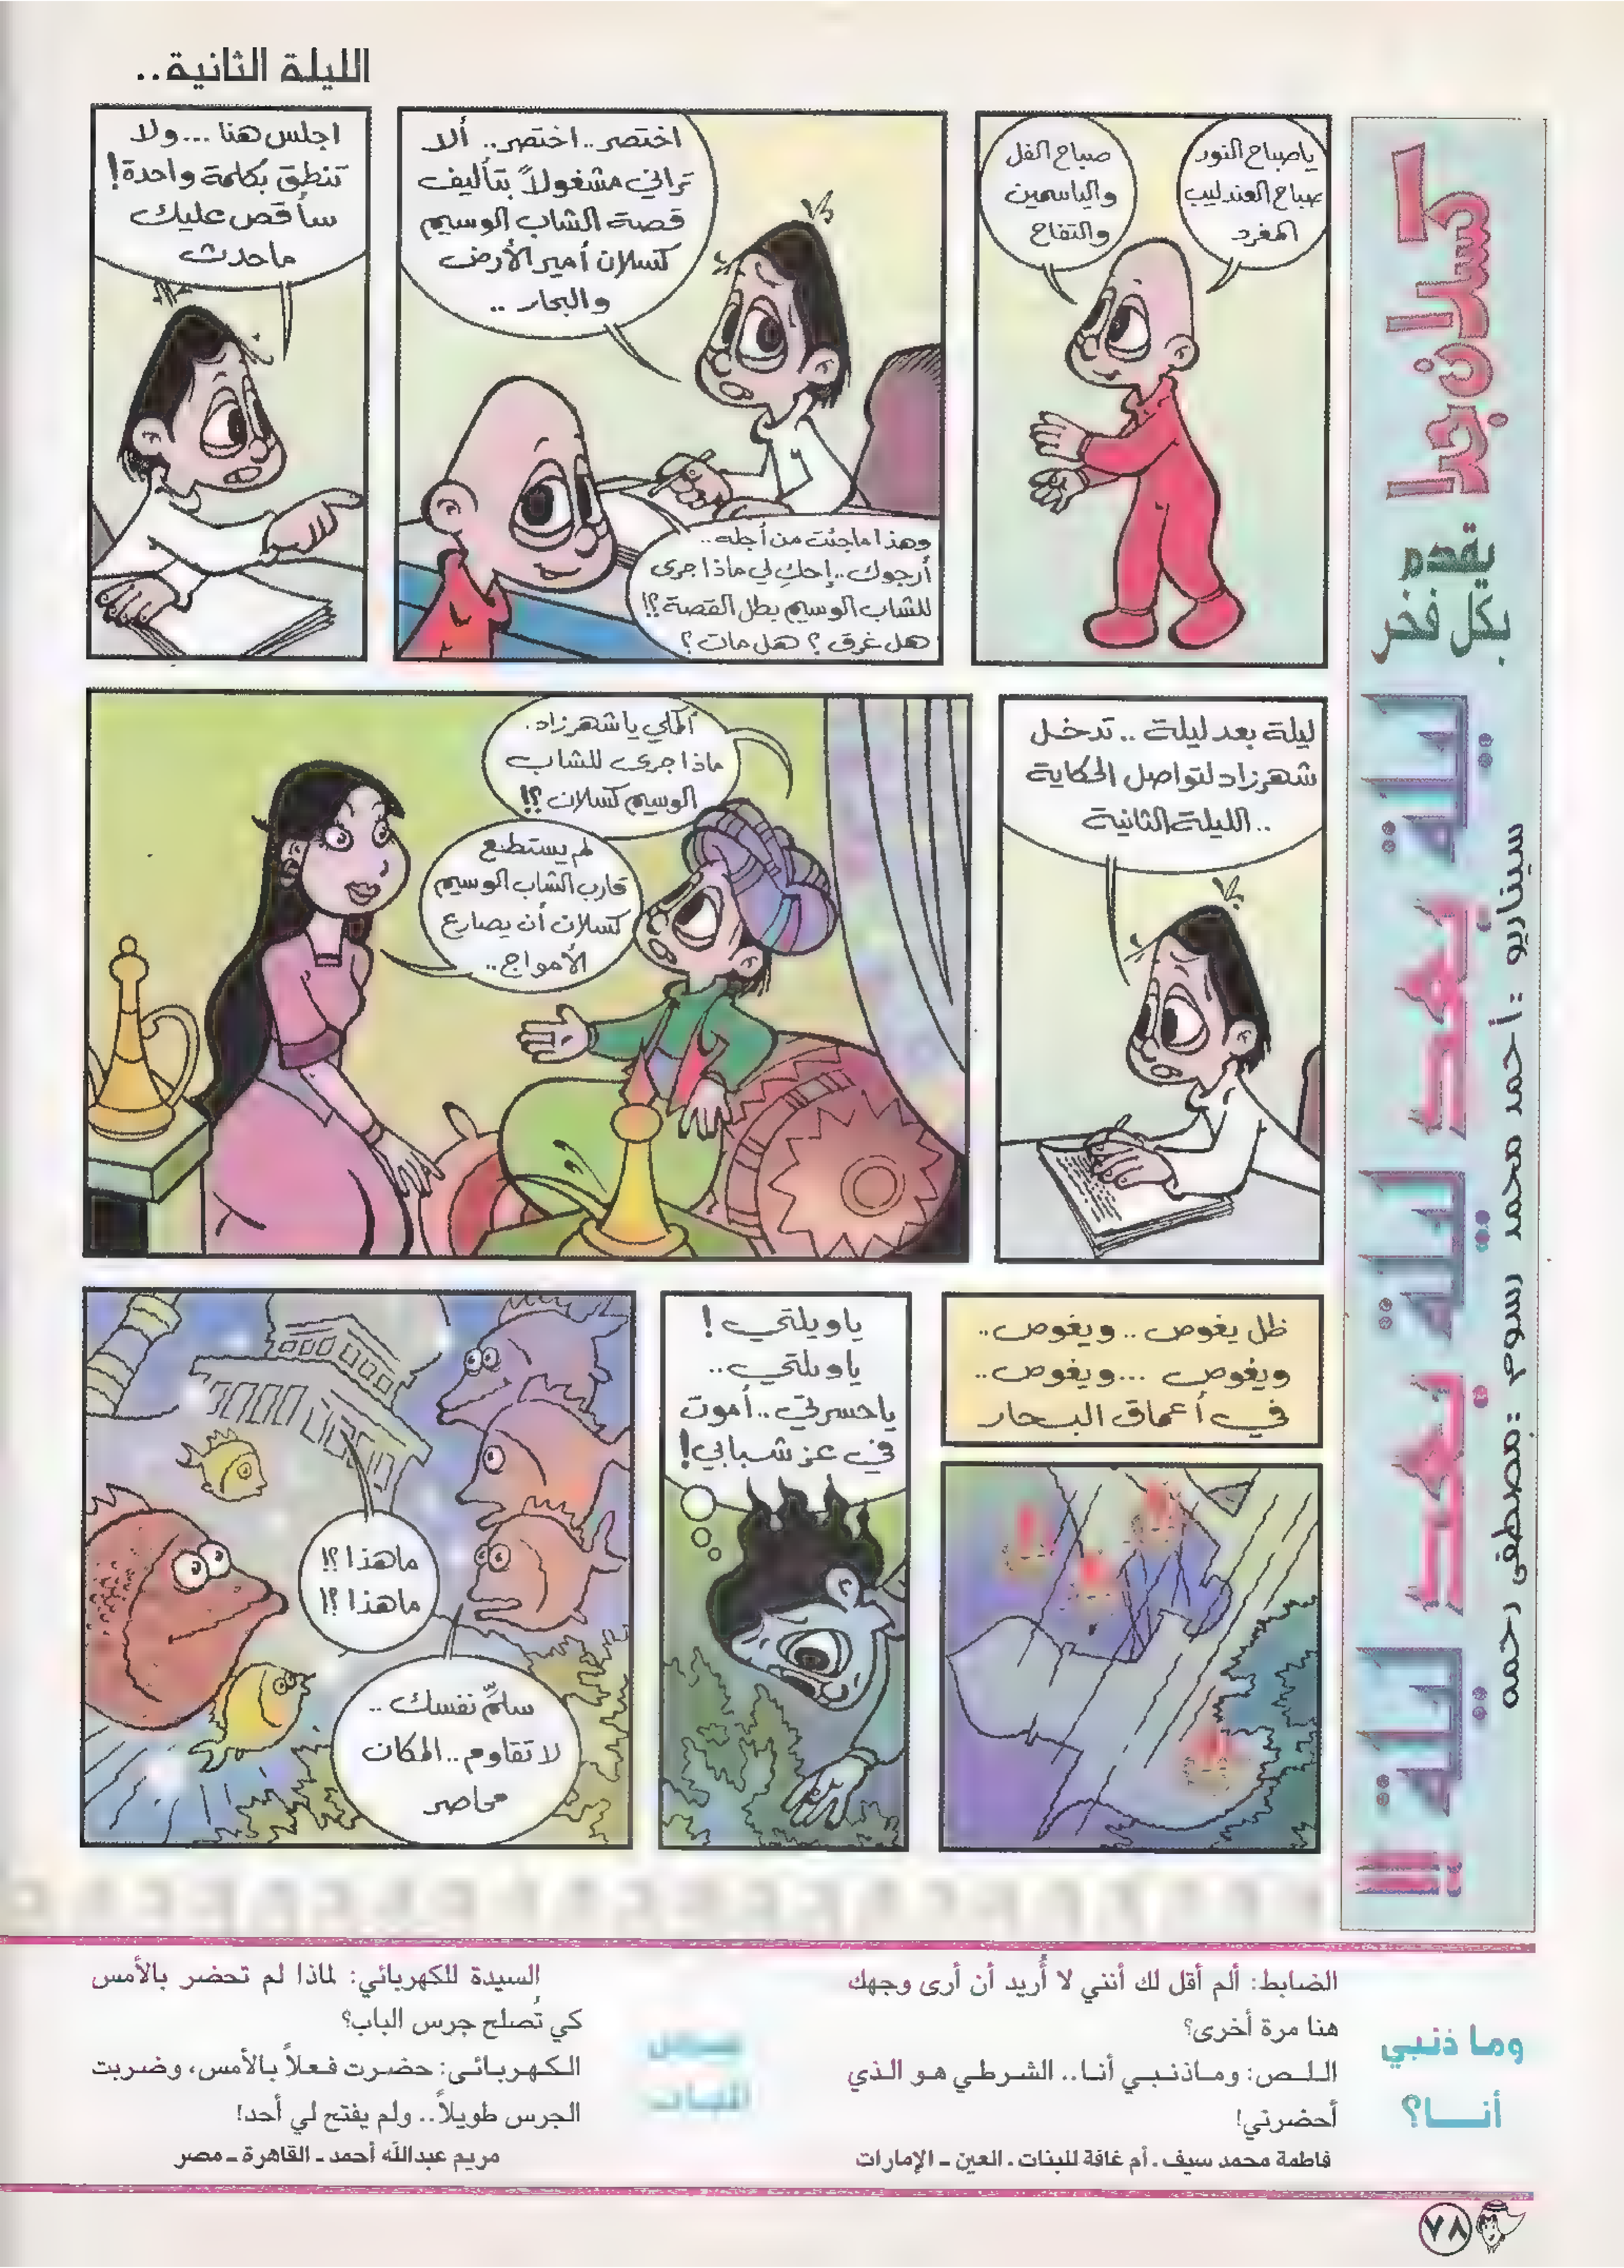 الليلة الثانية..
كسلان جدا
يقدم
بكل فخر
ليلة بعد ليلة بعد ليلة !!
سيناريو : أحمد محمد سوم : مصطفى رحمه
ياصباح النور
صباح العندليب
المغرد
صباح الفل
والياسمين
والتفاح
اختصر.. اختصر.. ألا
تراني مشغولاً بتأليف
قصة الشاب الوسيم
كسلان أمير الأرض
والبحار ..
وهذا ماجئت من أجله..
أرجوك.. إحك لي ماذا جرى
للشاب الوسيم بطل القصة؟!
هل غرق ؟ هل مات ؟
اجلس هنا ... ولا
تنطق بكلمة واحدة!
سأقص عليك
ماحدث
ليلة بعد ليلة .. تدخل
شهرزاد لتواصل الحكاية
.. الليلة الثانية
أكملي ياشهرزاد.
ماذا جرى للشاب
الوسيم كسلان ؟!
لم يستطع
قارب الشاب الوسيم
كسلان أن يصارع
الأمواج..
ظل يغوص .. ويغوص..
ويغوص ... ويغوص..
في أعماق البحار
ياويلتي !
ياويلتي..
ياحسرتي.. أموت
في عز شبابي!
ماهذا ؟!
ماهذا ؟!
سلّم نفسك ..
لا تقاوم.. المكان
محاصر
وما ذنبي
أنـــا؟
الضابط: ألم أقل لك أنني لا أُريد أن أرى وجهك
هنا مرة أخرى؟
اللـص: ومـاذنـبـي أنـا.. الشـرطـي هـو الـذي
أحضرني!
فاطمة محمد سيف. أم غافة للبنات. العين ـ الإمارات
السيدة للكهربائي: لماذا لم تحضر بالأمس
كي تُصلح جرس الباب؟
الكـهـربـائـى: حضـرت فـعـلاً بـالأمس، وضـربت
الجرس طويلاً.. ولم يفتح لي أحد!
مريم عبدالله أحمد ـ القاهرة ـ مصر
٧٨